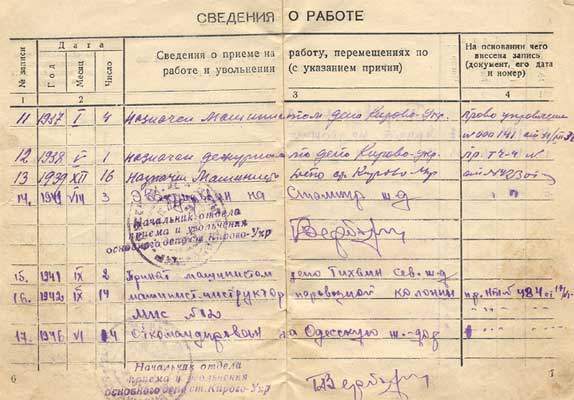 СВЕДЕНИЯ О РАБОТЕ
№ записи
Дата
Год
Месяц
Число
Сведения о приеме на работу, перемещениях по
работе и увольнении (с указанием причин)
На основании чего
внесена запись
(документ, его дата
и номер)
1 2 3 4
11 1937 I 4 назначен Машинистом депо Кирово-Укр.
12 1938 V 1 назначен дежурным по депо Кирово-укр. Пр. ТЧ-4 №
13 1939 XII 16 Назначен Депо ст. Кирово Укр
14. 1941 VIII 3 на ж-д
Начальник отдела
приема и увольнения
основного депо ст. Кирово-Укр
15. 1941 IX 2 Принят машинистом депо Тихвин Сев. ж-д
16. 1942 IX 14 машинист-инструктор паровозной колонны пр. 484
17. 1946 VI 14 Откомандирован на Одесскую ж-дор
Начальник отдела
приема и увольнения
основного депо ст. Кирово-Укр
6
7